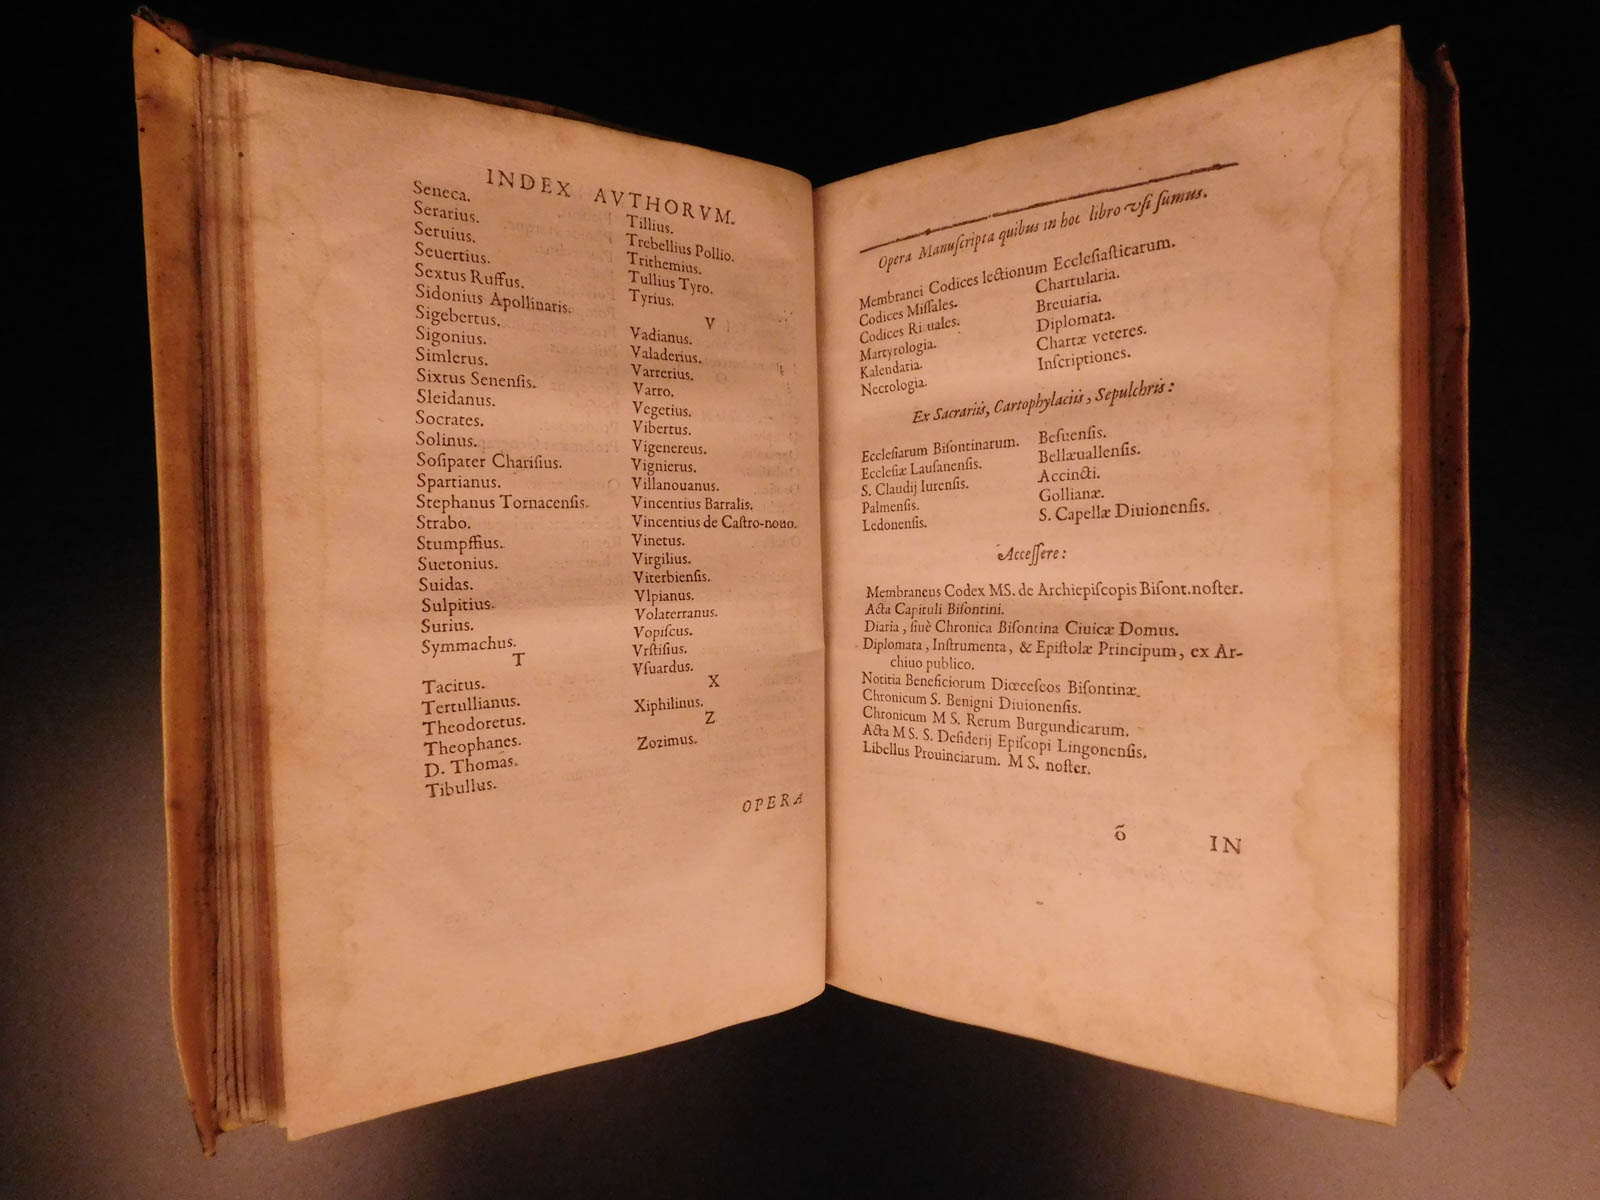 INDEX AVTHORVM.
Seneca.
Serarius.
Seruius.
Seuertius.
Sextus Ruffus.
Sidonius Apollinaris.
Sigebertus.
Sigonius.
Simlerus.
Sixtus Senensis.
Sleidanus.
Socrates.
Solinus.
Sosipater Charisius.
Spartianus.
Stephanus Tornacensis.
Strabo.
Stumpffius.
Suetonius.
Suidas.
Sulpitius.
Surius.
Symmachus.
T
Tacitus.
Tertullianus.
Theodoretus.
Theophanes.
D. Thomas.
Tibullus.
Tillius.
Trebellius Pollio.
Trithemius.
Tullius Tyro.
Tyrius.
V
Vadianus.
Valaderius.
Varrerius.
Varro.
Vegetius.
Vibertus.
Vigenereus.
Vignierus.
Villanouanus.
Vincentius Barralis.
Vincentius de Castro-nouo.
Vinetus.
Virgilius.
Viterbiensis.
Vlpianus.
Volaterranus.
Vopiscus.
Vrstisius.
Vsuardus.
X
Xiphilinus.
Z
Zozimus.
OPERA
Opera Manuſcripta quibus in hoc libro vſi ſumus.
Membranei Codices lectionum Eccleſiaſticarum.
Codices Miſſales.
Codices Rituales.
Martyrologia.
Kalendaria.
Necrologia.
Chartularia.
Breuiaria.
Diplomata.
Chartæ veteres.
Inſcriptiones.
Ex Sacrariis, Cartophylaciis, Sepulchris:
Eccleſiarum Biſontinarum.
Eccleſiæ Lauſanenſis.
S. Claudij Iurenſis.
Palmenſis.
Ledonenſis.
Beſuenſis.
Bellæuallenſis.
Accincti.
Gollianæ.
S. Capellæ Diuionenſis.
Acceſſere:
Membraneus Codex MS. de Archiepiſcopis Biſont. noſter.
Acta Capituli Biſontini.
Diaria, ſiuè Chronica Biſontina Ciuicæ Domus.
Diplomata, Inſtrumenta, & Epiſtolæ Principum, ex Ar-
chiuo publico.
Notitia Beneficiorum Diœceſeos Biſontinæ.
Chronicum S. Benigni Diuionenſis.
Chronicum MS. Rerum Burgundicarum.
Acta MS. S. Deſiderij Epiſcopi Lingonenſis.
Libellus Prouinciarum. MS. noſter.
õ IN